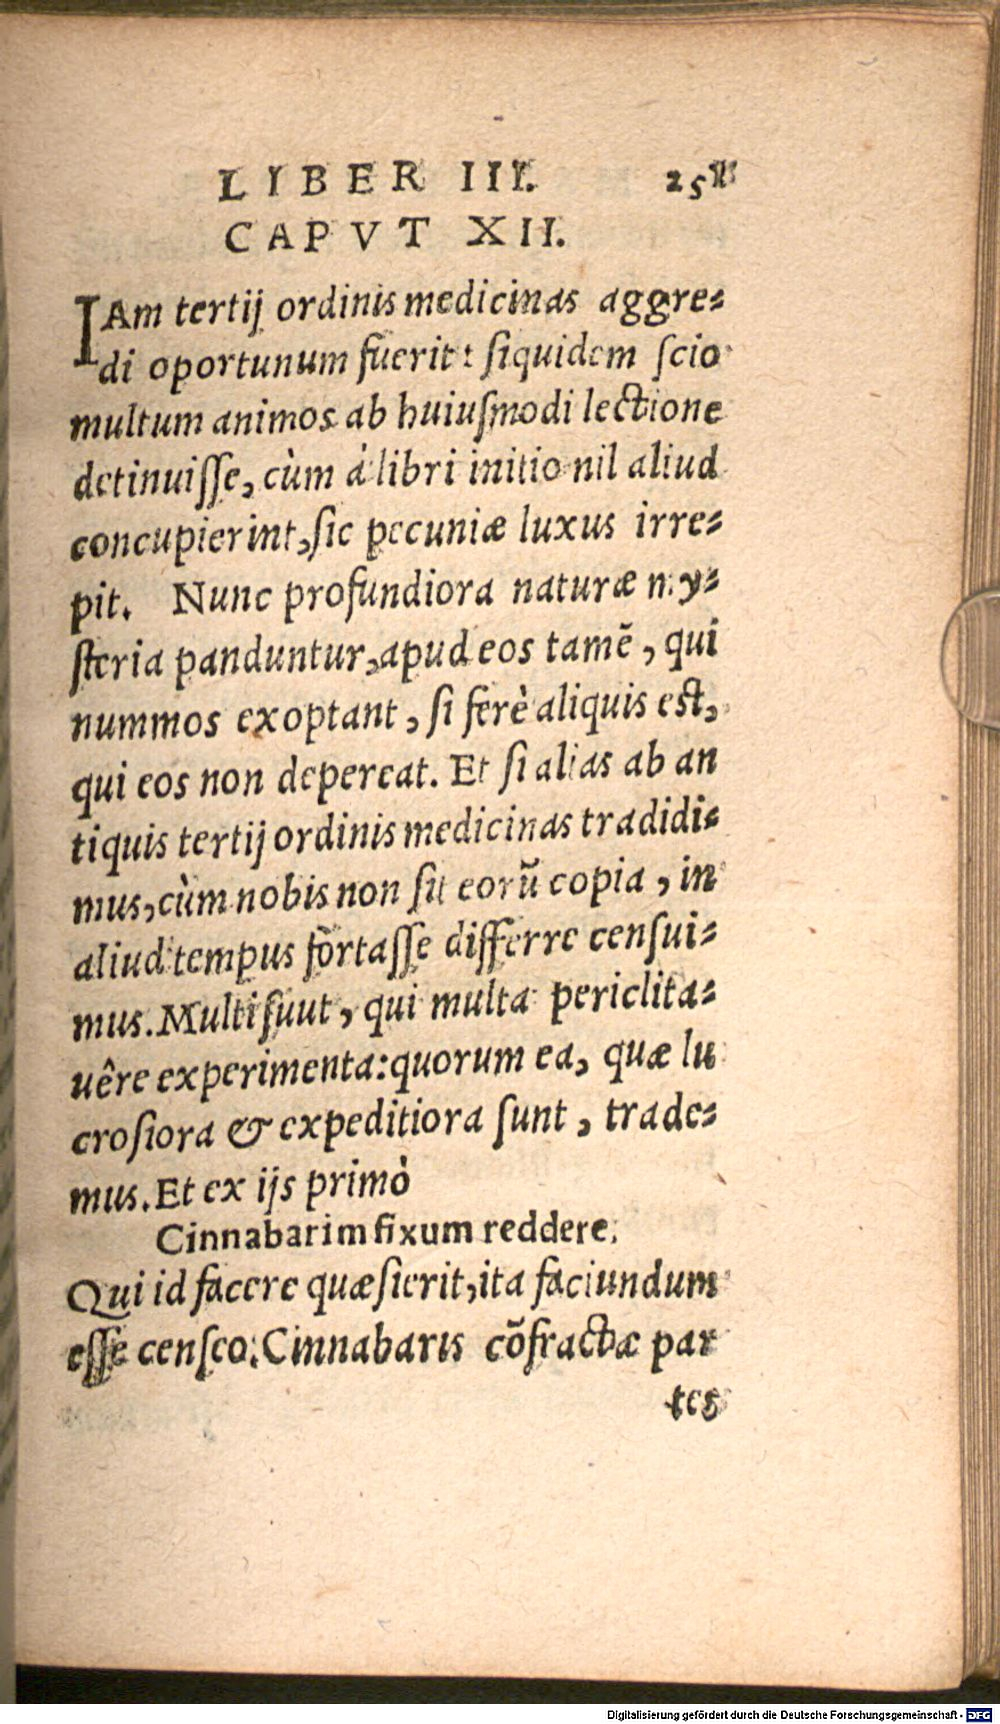 LIBER III.
CAPVT XII.
IAm tertij ordinis medicinas aggre-
di oportunum fuerit: siquidem scio
multum animos ab huiusmodi lectione
detinuisse, cùm à libri initio nil aliud
concupierint, sic pecuniæ luxus irre-
pit. Nunc profundiora naturæ my-
steria panduntur, apud eos tamẽ, qui
nummos exoptant, si ferè aliquis est,
qui eos non depereat. Et si alias ab an
tiquis tertij ordinis medicinas tradidi-
mus, cùm nobis non sit eorũ copia, in
aliud tempus fortasse differre censui-
mus. Multi suut, qui multa periclita-
uêre experimenta: quorum ea, quæ lu
crosiora & expeditiora sunt, trade-
mus. Et ex ijs primò
Cinnabarim fixum reddere.
Qui id facere quæsierit, ita faciundum
esse censeo. Cinnabaris cõfractæ par
tes
Digitalisierung gefördert durch die Deutsche Forschungsgemeinschaft - DFG